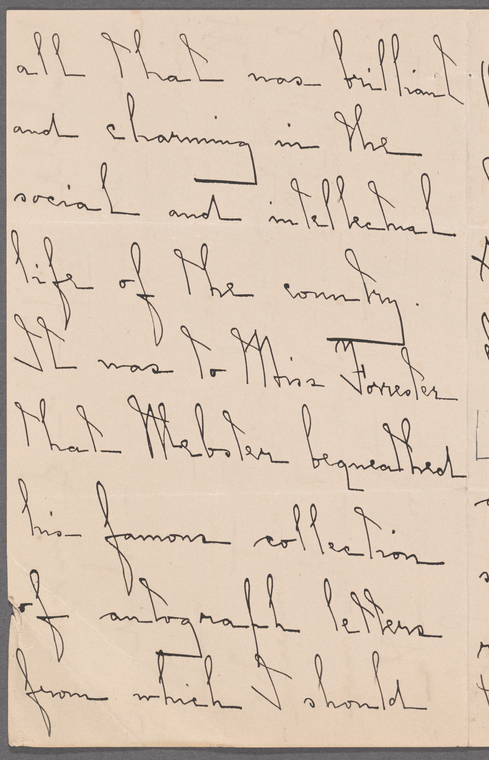 all that was brilliant
and charming in the
social and intellectual
life of the country.
It was to Miss Forrester
that Webster bequeathed
his famous collection
of autograph letters
from which I should